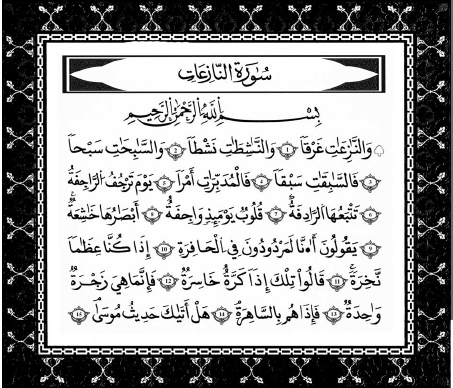 سُورَةُ النَّازِعَاتِ
بِسْمِ اللَّهِ الرَّحْمَٰنِ الرَّحِيمِ
وَالنَّٰزِعَٰتِ غَرْقًا ١ وَالنَّٰشِطَٰتِ نَشْطًا ٢ وَالسَّٰبِحَٰتِ سَبْحًا
٣ فَالسَّٰبِقَٰتِ سَبْقًا ٤ فَالْمُدَبِّرَٰتِ أَمْرًا ٥ يَوْمَ تَرْجُفُ الرَّاجِفَةُ
٦ تَتْبَعُهَا الرَّادِفَةُ ٧ قُلُوبٌ يَوْمَئِذٍ وَاجِفَةٌ ٨ أَبْصَٰرُهَا خَٰشِعَةٌ
٩ يَقُولُونَ أَءِنَّا لَمَرْدُودُونَ فِي الْحَافِرَةِ ١٠ إِذَا كُنَّا عِظَٰمًا
نَّخِرَةً ١١ قَالُوا۟ تِلْكَ إِذًا كَرَّةٌ خَاسِرَةٌ ١٢ فَإِنَّمَا هِيَ زَجْرَةٌ
وَٰحِدَةٌ ١٣ فَإِذَا هُم بِالسَّاهِرَةِ ١٤ هَلْ أَتَىٰكَ حَدِيثُ مُوسَىٰ ١٥